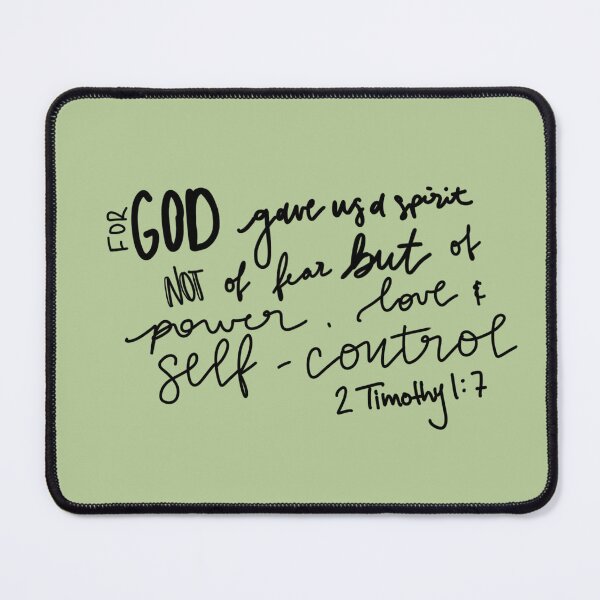 FOR GOD gave us a spirit
NOT of fear but of
power. love &
self-control
2 Timothy 1:7